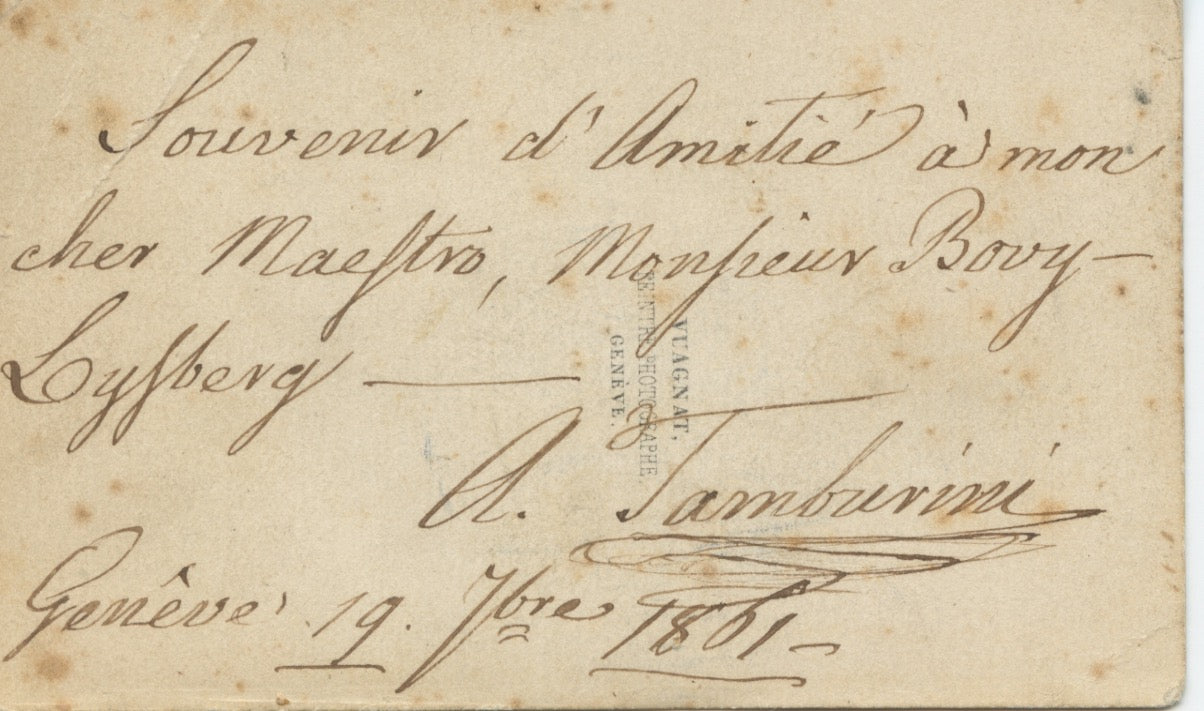 Souvenir d'Amitié à mon
cher Maeſtro, Monſieur Bovy-
Lyſberg —
A. Tamburini
Genêve 19. 7bre 1861
VUAGNAT,
PEINTRE PHOTOGRAPHE,
GENÈVE.